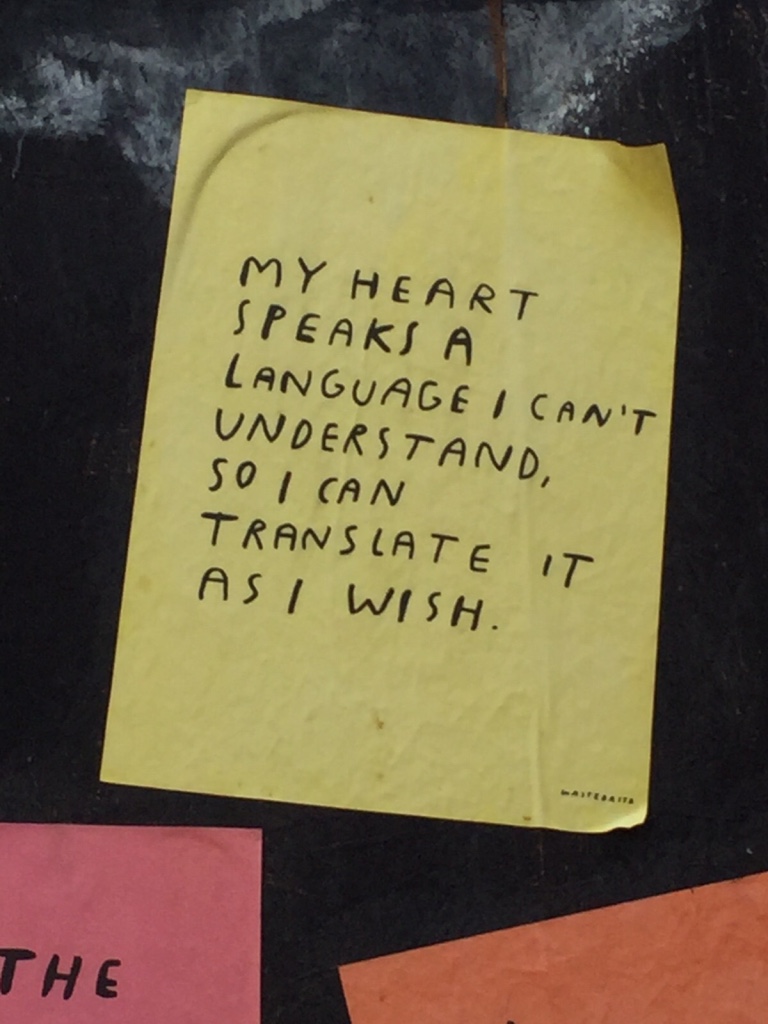 MY HEART
SPEAKS A
LANGUAGE I CAN'T
UNDERSTAND,
SO I CAN
TRANSLATE IT
AS I WISH.
THE